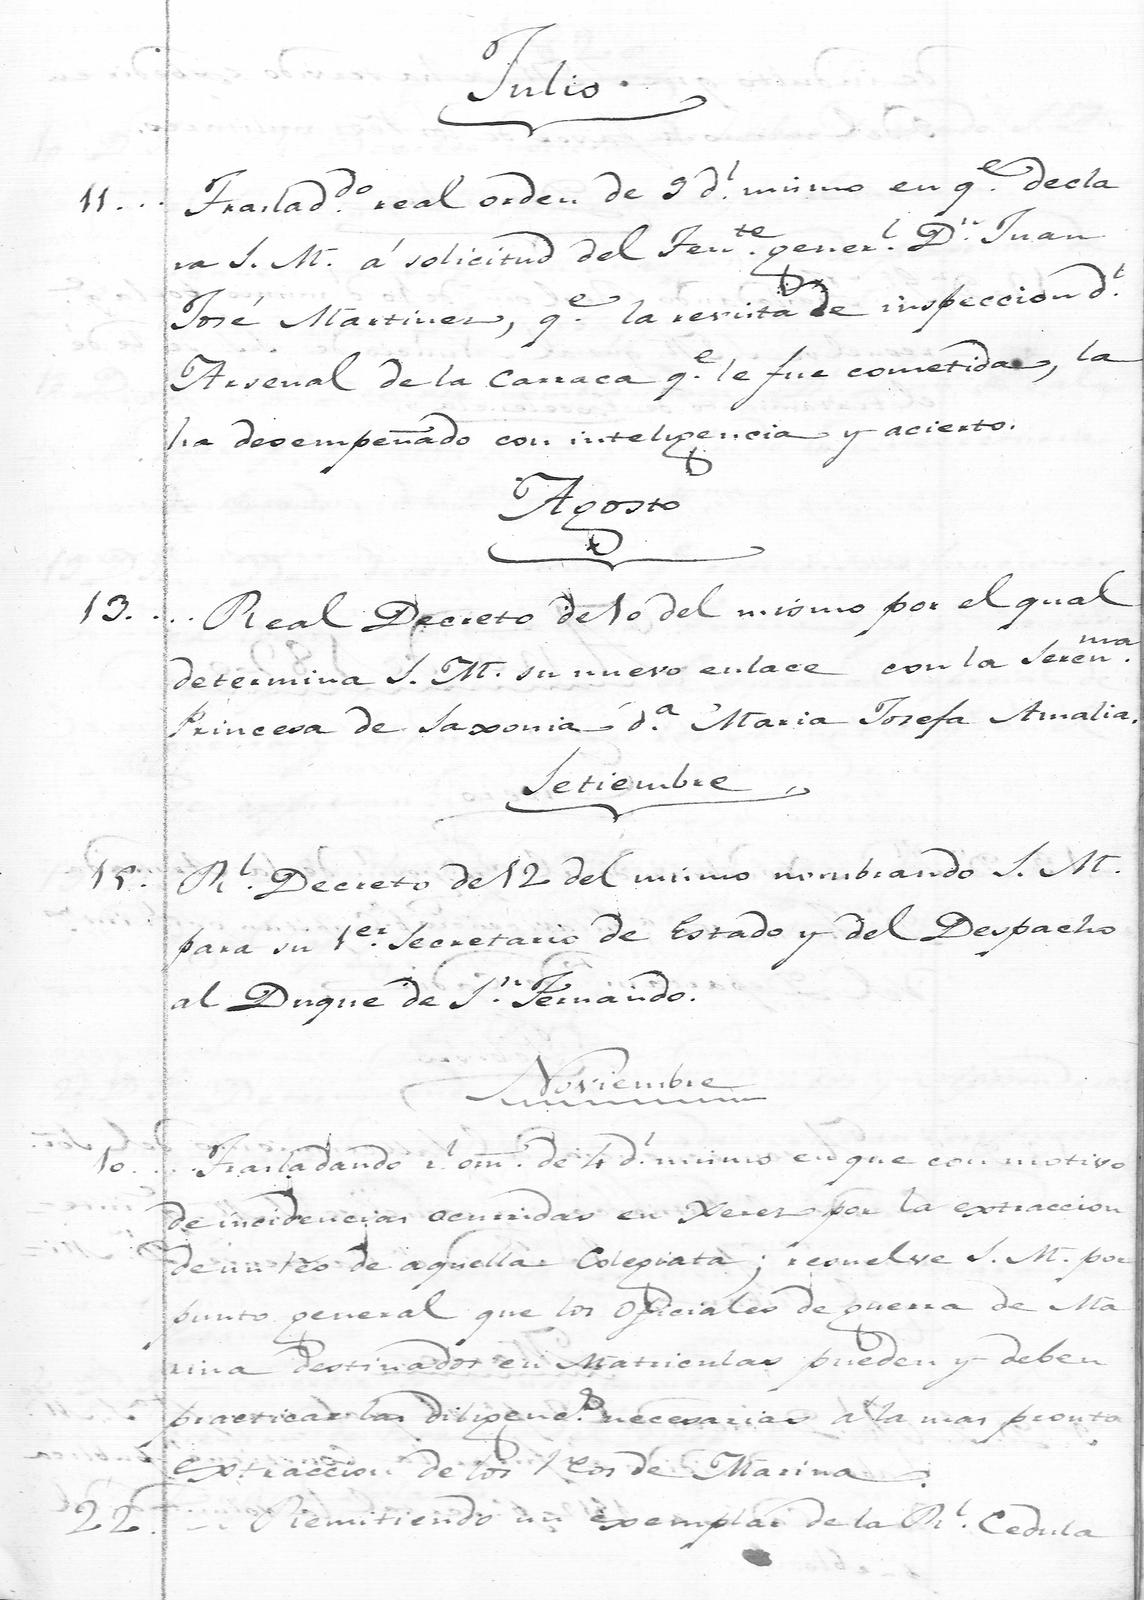 Julio.
11... Traslad.do real orden de 9 d.l mismo en q.e decla
ra S. M. á solicitud del Ten.te gener.l D.n Juan
José Martinez, q.e la revista de inspeccion d.l
Arsenal de la Carraca q.e le fue cometida, la
ha desempeñado con inteligencia y acierto.
Agosto
13.... Real Decreto de 10 del mismo por el qual
determina S. M. su nuevo enlace con la Seren.ma
Princesa de Saxonia d.a Maria Josefa Amalia.
Setiembre
15. R.l Decreto de 12 del mismo nombrando S. M.
para su 1.er Secretario de Estado y del Despacho
al Duque de S.n Fernando.
Noviembre
10.... Trasladando r.l orn. de 4 d.l mismo en que con motivo
de incidencias ocurridas en Xerez por la extraccion
de un reo de aquella Colegiata; resuelve S. M. por
punto general que los Oficiales de guerra de Ma
rina destinados en Matriculas pueden y deben
practicar las diligenc.s necesarias a la mas pronta
extraccion de los reos de Marina.
22. Remitiendo un exemplar de la R.l Cedula